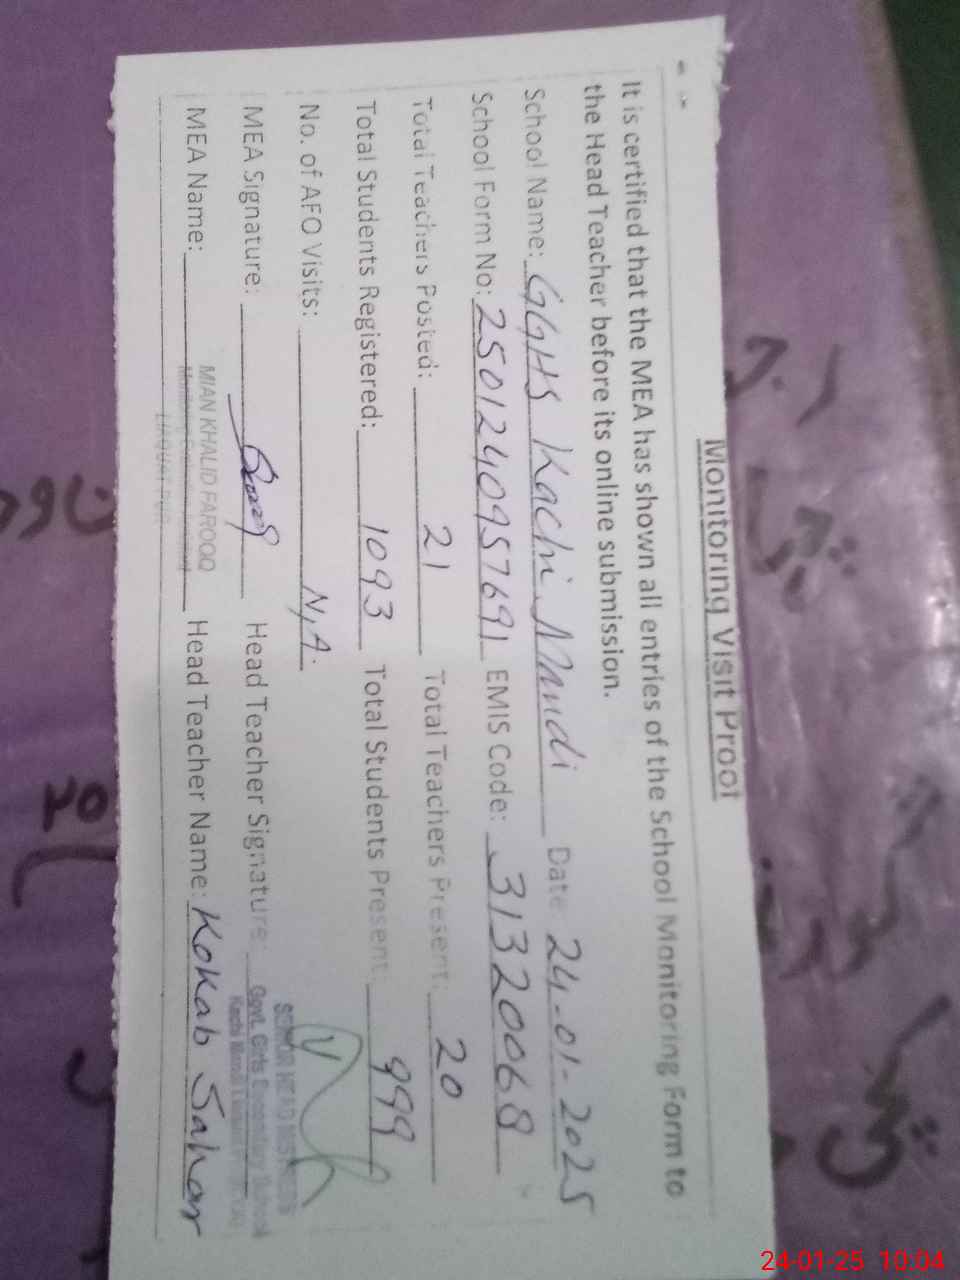 Monitoring Visit Proof
It is certified that the MEA has shown all entries of the School Monitoring Form to
the Head Teacher before its online submission.
School Name: GGHS Kachi Mandi Date: 24-01-2025
School Form No: 25012409576 91 EMIS Code: 31320068
Total Teachers Posted: 21 Total Teachers Present: 20
Total Students Registered: 1093 Total Students Present: 999
No. of AFO Visits: N,A.
MEA Signature: Head Teacher Signature:
SENIOR HEAD MISTRESS
Govt. Girls Secondary School
Kachi Mandi
MEA Name: Head Teacher Name: Kokab Sahar
MIAN KHALID FAROOQ
24-01-25 10:04